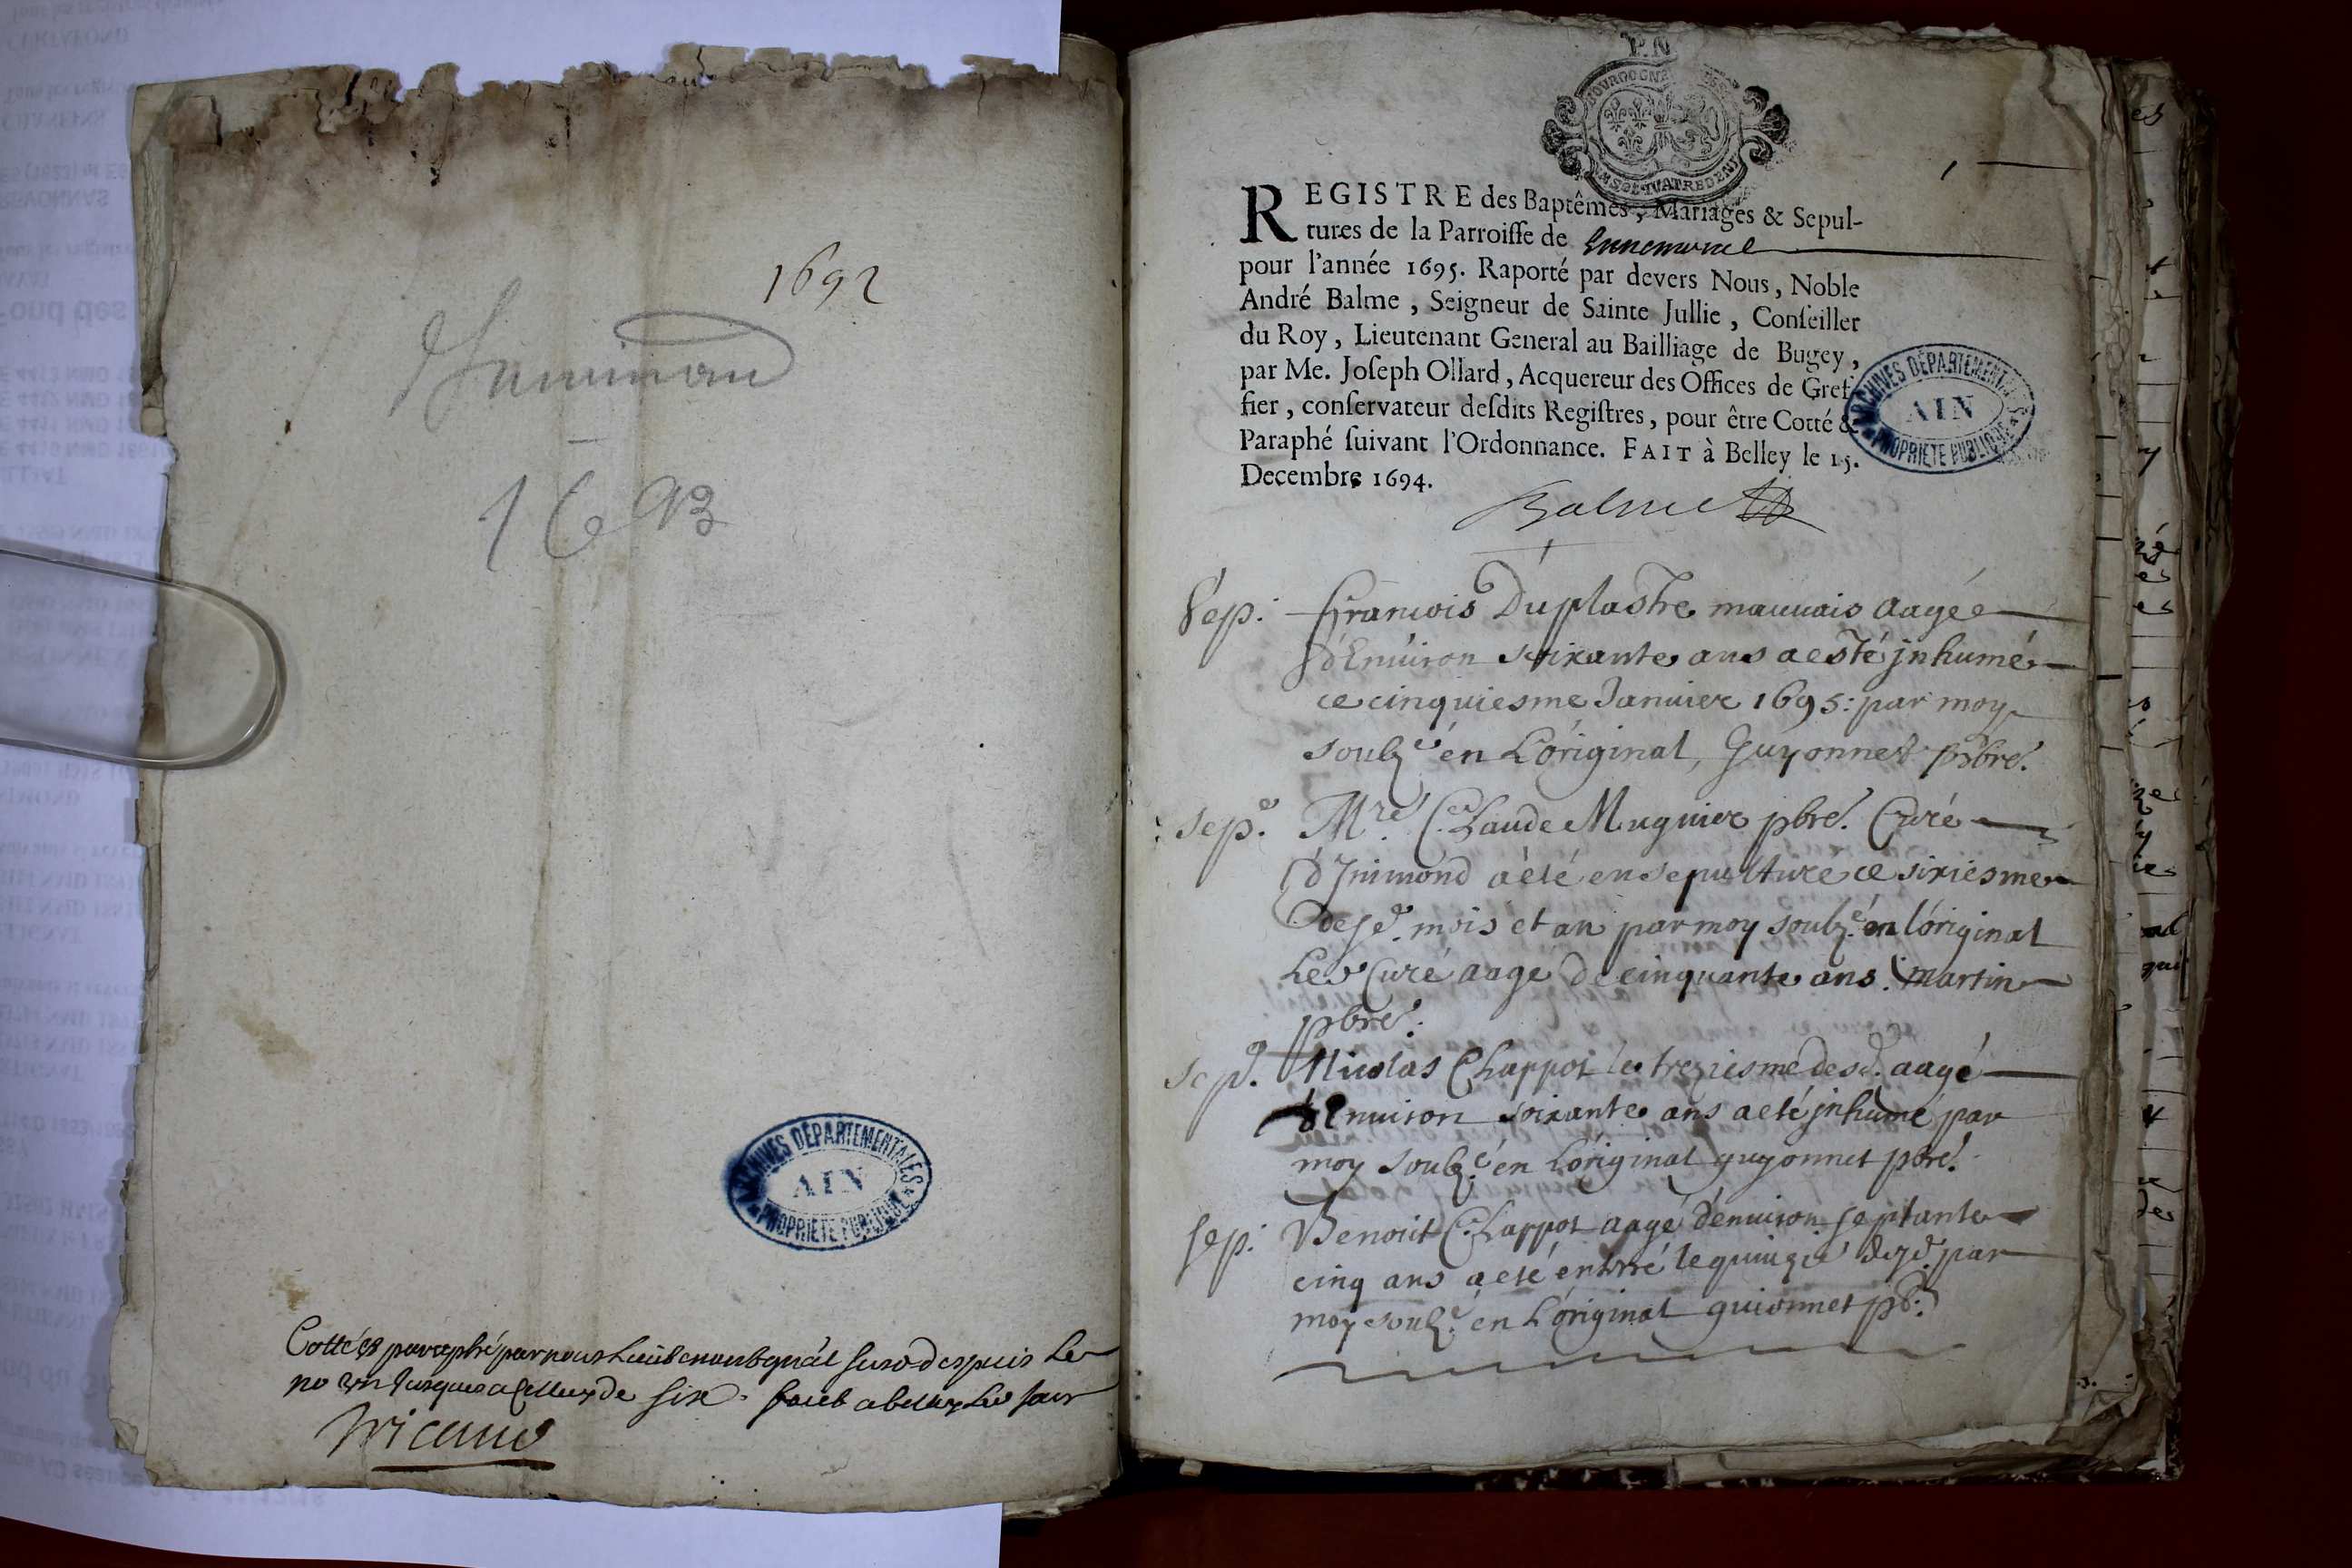 1692
Innimond
1693
ARCHIVES DÉPARTEMENTALES
AIN
PROPRIETE PUBLIQUE
Cotté & paraphé par nous Lieutenant gnâl susd despuis le
no un Jusques a Celluy de six. faict a belley les jour
1
REGISTRE des Baptêmes, Mariages & Sepul-
tures de la Parroisse de Ennemond
pour l'année 1695. Raporté par devers Nous, Noble
André Balme, Seigneur de Sainte Jullie, Conseiller
du Roy, Lieutenant General au Bailliage de Bugey,
par Me. Joseph Ollard, Acquereur des Offices de Gref
fier, conservateur desdits Registres, pour être Cotté &
Paraphé suivant l'Ordonnance. FAIT à Belley le 15.
Decembre 1694.
Balme
ARCHIVES DÉPARTEMENTALES
AIN
PROPRIETE PUBLIQUE
Sep: Francois Duplastre mauuais aagé
d'Enuiron soixante ans a esté jnhumé
ce cinquiesme Januier 1695: par moy
soulz.é en L'original, Guyonnet pbre.
sep.e Mre. Claude Mugnier pbre. Curé
d'Jnimond a été ensepulturé ce sixiesme
desd. mois et an par moy soulz.é en l'original
Led Curé aagé de cinquante ans. martin
pbre.
sep. Nicolas Chappot le treziesme desd. aagé
d'Enuiron soixante ans a eté jnhumé par
moy soulz.é en L'original guyonnet pbre.
sep: Benoit Chappot aagé d'enuiron septante
cinq ans a eté enterré le quinzie desd. par
moy soulz.é en L'original guionnet pb: